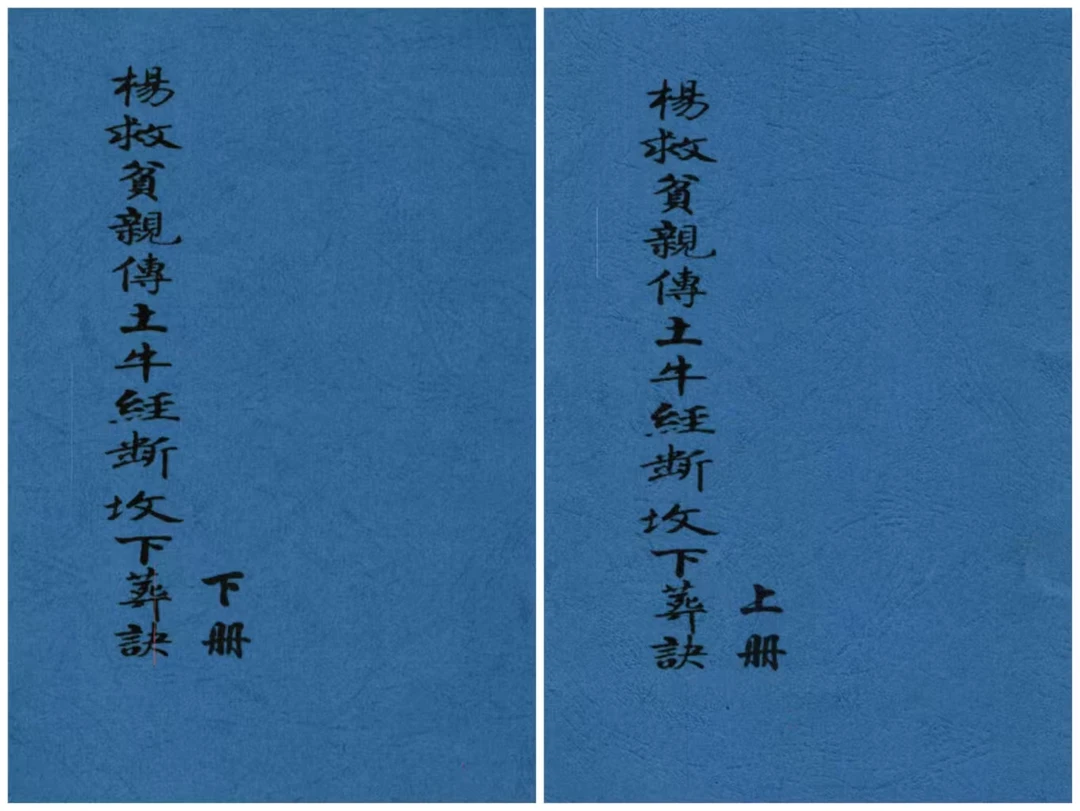 楊救貧親傳土牛經断坟下葬訣
下册
楊救貧親傳土牛經断坟下葬訣
上册